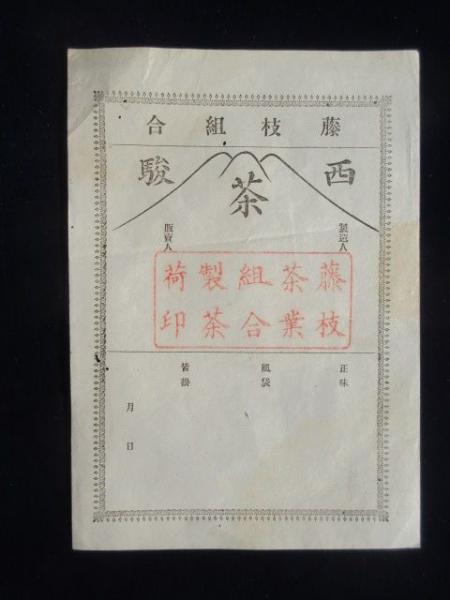 藤枝組合
西駿
茶
製造人
販賣人
藤枝
茶業
組合
製茶
荷印
正味
風袋
皆掛
月 日